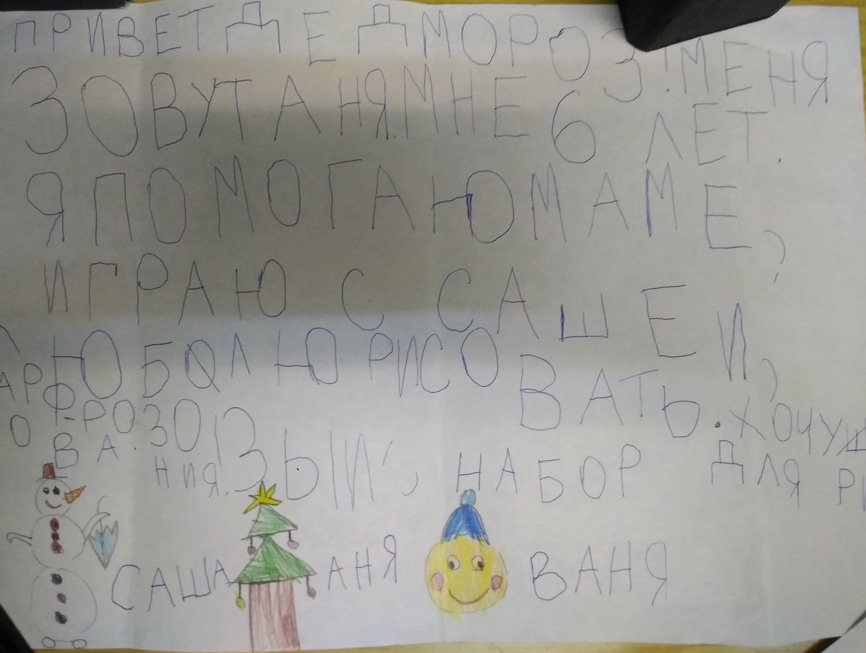 ПРИВЕТ ДЕД МОРОЗ! МЕНЯ
ЗОВУТ АНЯ. МНЕ 6 ЛЕТ.
Я ПОМОГАЮ МАМЕ,
ИГРАЮ С САШЕЙ,
ЛЮБОЛЮ РИСОВАТЬ. ХОЧУ Ш
АРФ РОЗО
ЗЫЙ, НАБОР ДЛЯ РИ
СОВА
НИЯ.
САША АНЯ ВАНЯ